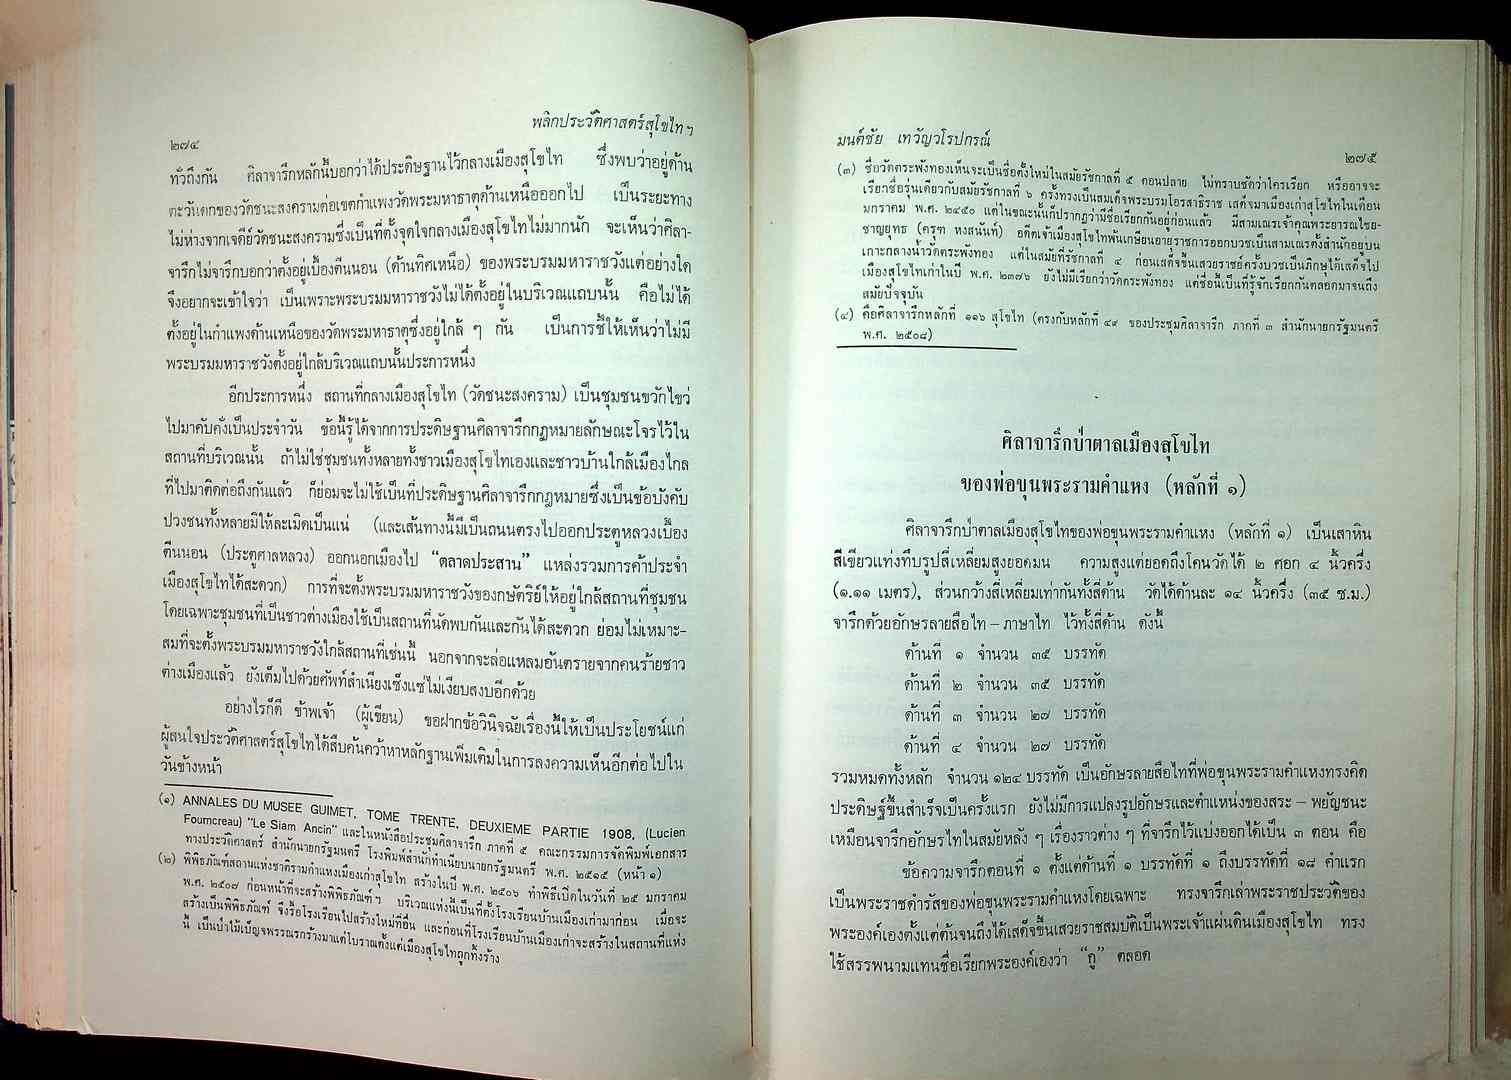 พลิกประวัติศาสตร์สุโขไทฯ
๒๗๔
ทั่วถึงกัน ศิลาจารึกหลักนี้บอกว่าได้ประดิษฐานไว้กลางเมืองสุโขไท ซึ่งพบว่าอยู่ด้าน
ตะวันตกของวัดชนะสงครามต่อเขตกำแพงวัดพระมหาธาตุด้านเหนือออกไป เป็นระยะทาง
ไม่ห่างจากเจดีย์วัดชนะสงครามซึ่งเป็นที่ตั้งจุดใจกลางเมืองสุโขไทไม่มากนัก จะเห็นว่าศิลา-
จารึกไม่จารึกบอกว่าตั้งอยู่เบื้องตีนนอน (ด้านทิศเหนือ) ของพระบรมมหาราชวังแต่อย่างใด
จึงอยากจะเข้าใจว่า เป็นเพราะพระบรมมหาราชวังไม่ได้ตั้งอยู่ในบริเวณแถบนั้น คือไม่ได้
ตั้งอยู่ในกำแพงด้านเหนือของวัดพระมหาธาตุซึ่งอยู่ใกล้ ๆ กัน เป็นการชี้ให้เห็นว่าไม่มี
พระบรมมหาราชวังตั้งอยู่ใกล้บริเวณแถบนั้นประการหนึ่ง
อีกประการหนึ่ง สถานที่กลางเมืองสุโขไท (วัดชนะสงคราม) เป็นชุมชนขวักไขว่
ไปมาคับคั่งเป็นประจำวัน ข้อนี้รู้ได้จากการประดิษฐานศิลาจารึกกฎหมายลักษณะโจรไว้ใน
สถานที่บริเวณนั้น ถ้าไม่ใช่ชุมชนทั้งหลายทั้งชาวเมืองสุโขไทเองและชาวบ้านใกล้เมืองไกล
ที่ไปมาติดต่อถึงกันแล้ว ก็ย่อมจะไม่ใช้เป็นที่ประดิษฐานศิลาจารึกกฎหมายซึ่งเป็นข้อบังคับ
ปวงชนทั้งหลายมิให้ละเมิดเป็นแน่ (และเส้นทางนี้มีเป็นถนนตรงไปออกประตูหลวงเบื้อง
ตีนนอน (ประตูศาลหลวง) ออกนอกเมืองไป “ตลาดประสาน” แหล่งรวมการค้าประจำ
เมืองสุโขไทได้สะดวก) การที่จะตั้งพระบรมมหาราชวังของกษัตริย์ให้อยู่ใกล้สถานที่ชุมชน
โดยเฉพาะชุมชนที่เป็นชาวต่างเมืองใช้เป็นสถานที่นัดพบกันและกันได้สะดวก ย่อมไม่เหมาะ-
สมที่จะตั้งพระบรมมหาราชวังใกล้สถานที่เช่นนี้ นอกจากจะล่อแหลมอันตรายจากคนร้ายชาว
ต่างเมืองแล้ว ยังเต็มไปด้วยศัพท์สำเนียงเซ็งแซ่ไม่เงียบสงบอีกด้วย
อย่างไรก็ดี ข้าพเจ้า (ผู้เขียน) ขอฝากข้อวินิจฉัยเรื่องนี้ให้เป็นประโยชน์แก่
ผู้สนใจประวัติศาสตร์สุโขไทได้สืบค้นคว้าหาหลักฐานเพิ่มเติมในการลงความเห็นอีกต่อไปใน
วันข้างหน้า
(๑) ANNALES DU MUSEE GUIMET, TOME TRENTE, DEUXIEME PARTIE 1908, (Lucien
Fourncreau) "Le Siam Ancin" และในหนังสือประชุมศิลาจารึก ภาคที่ ๕ คณะกรรมการจัดพิมพ์เอกสาร
ทางประวัติศาสตร์ สำนักนายกรัฐมนตรี โรงพิมพ์สำนักทำเนียบนายกรัฐมนตรี พ.ศ. ๒๕๑๕ (หน้า ๑)
(๒) พิพิธภัณฑ์สถานแห่งชาติรามคำแหงเมืองเก่าสุโขไท สร้างในปี พ.ศ. ๒๕๐๖ ทำพิธีเปิดในวันที่ ๒๕ มกราคม
พ.ศ. ๒๕๐๗ ก่อนหน้าที่จะสร้างพิพิธภัณฑ์ฯ บริเวณแห่งนี้เป็นที่ตั้งโรงเรียนบ้านเมืองเก่ามาก่อน เมื่อจะ
สร้างเป็นพิพิธภัณฑ์ จึงรื้อโรงเรียนไปสร้างใหม่ที่อื่น และก่อนที่โรงเรียนบ้านเมืองเก่าจะสร้างในสถานที่แห่ง
นี้ เป็นป่าไม้เบ็ญจพรรณรกร้างมาแต่โบราณตั้งแต่เมืองสุโขไทถูกทิ้งร้าง
มนต์ชัย เทวัญวโรปกรณ์
๒๗๕
(๓) ชื่อวัดตระพังทองเห็นจะเป็นชื่อตั้งใหม่ในสมัยรัชกาลที่ ๕ ตอนปลาย ไม่ทราบชัดว่าใครเรียก หรืออาจจะ
เรียกชื่อรุ่นเดียวกับสมัยรัชกาลที่ ๖ ครั้งทรงเป็นสมเด็จพระบรมโอรสาธิราช เสด็จมาเมืองเก่าสุโขไทในเดือน
มกราคม พ.ศ. ๒๔๕๐ แต่ในขณะนั้นก็ปรากฏว่ามีชื่อเรียกกันอยู่ก่อนแล้ว มีสามเณรเจ้าคุณพระยารณไชย-
ชาญยุทธ (ครุฑ หงสนันท์) อดีตเจ้าเมืองสุโขไทพ้นเกษียนอายุราชการออกบวชเป็นสามเณรตั้งสำนักอยู่บน
เกาะกลางน้ำวัดตระพังทอง แต่ในสมัยที่รัชกาลที่ ๔ ก่อนเสด็จขึ้นเสวยราชย์ครั้งบวชเป็นภิกษุได้เสด็จไป
เมืองสุโขไทเก่าในปี พ.ศ. ๒๓๗๖ ยังไม่มีเรียกว่าวัดตระพังทอง แต่ชื่อนี้เป็นที่รู้จักเรียกกันตลอดมาจนถึง
สมัยปัจจุบัน
(๔) คือศิลาจารึกหลักที่ ๑๑๖ สุโขไท (ตรงกับหลักที่ ๔๙ ของประชุมศิลาจารึก ภาคที่ ๓ สำนักนายกรัฐมนตรี
พ.ศ. ๒๕๐๘)
ศิลาจารึกป่าตาลเมืองสุโขไท
ของพ่อขุนพระรามคำแหง (หลักที่ ๑)
ศิลาจารึกป่าตาลเมืองสุโขไทของพ่อขุนพระรามคำแหง (หลักที่ ๑) เป็นเสาหิน
สีเขียวแท่งทึบรูปสี่เหลี่ยมสูงยอดมน ความสูงแต่ยอดถึงโคนวัดได้ ๒ ศอก ๔ นิ้วครึ่ง
(๑.๑๑ เมตร), ส่วนกว้างสี่เหลี่ยมเท่ากันทั้งสี่ด้าน วัดได้ด้านละ ๑๔ นิ้วครึ่ง (๓๕ ซ.ม.)
จารึกด้วยอักษรลายสือไท – ภาษาไท ไว้ทั้งสี่ด้าน ดังนี้
ด้านที่ ๑ จำนวน ๓๕ บรรทัด
ด้านที่ ๒ จำนวน ๓๕ บรรทัด
ด้านที่ ๓ จำนวน ๒๗ บรรทัด
ด้านที่ ๔ จำนวน ๒๗ บรรทัด
รวมหมดทั้งหลัก จำนวน ๑๒๔ บรรทัด เป็นอักษรลายสือไทที่พ่อขุนพระรามคำแหงทรงคิด
ประดิษฐ์ขึ้นสำเร็จเป็นครั้งแรก ยังไม่มีการแปลงรูปอักษรและตำแหน่งของสระ – พยัญชนะ
เหมือนจารึกอักษรไทในสมัยหลัง ๆ เรื่องราวต่าง ๆ ที่จารึกไว้แบ่งออกได้เป็น ๓ ตอน คือ
ข้อความจารึกตอนที่ ๑ ตั้งแต่ด้านที่ ๑ บรรทัดที่ ๑ ถึงบรรทัดที่ ๑๘ คำแรก
เป็นพระราชดำรัสของพ่อขุนพระรามคำแหงโดยเฉพาะ ทรงจารึกเล่าพระราชประวัติของ
พระองค์เองตั้งแต่ต้นจนถึงได้เสด็จขึ้นเสวยราชสมบัติเป็นพระเจ้าแผ่นดินเมืองสุโขไท ทรง
ใช้สรรพนามแทนชื่อเรียกพระองค์เองว่า “กู” ตลอด